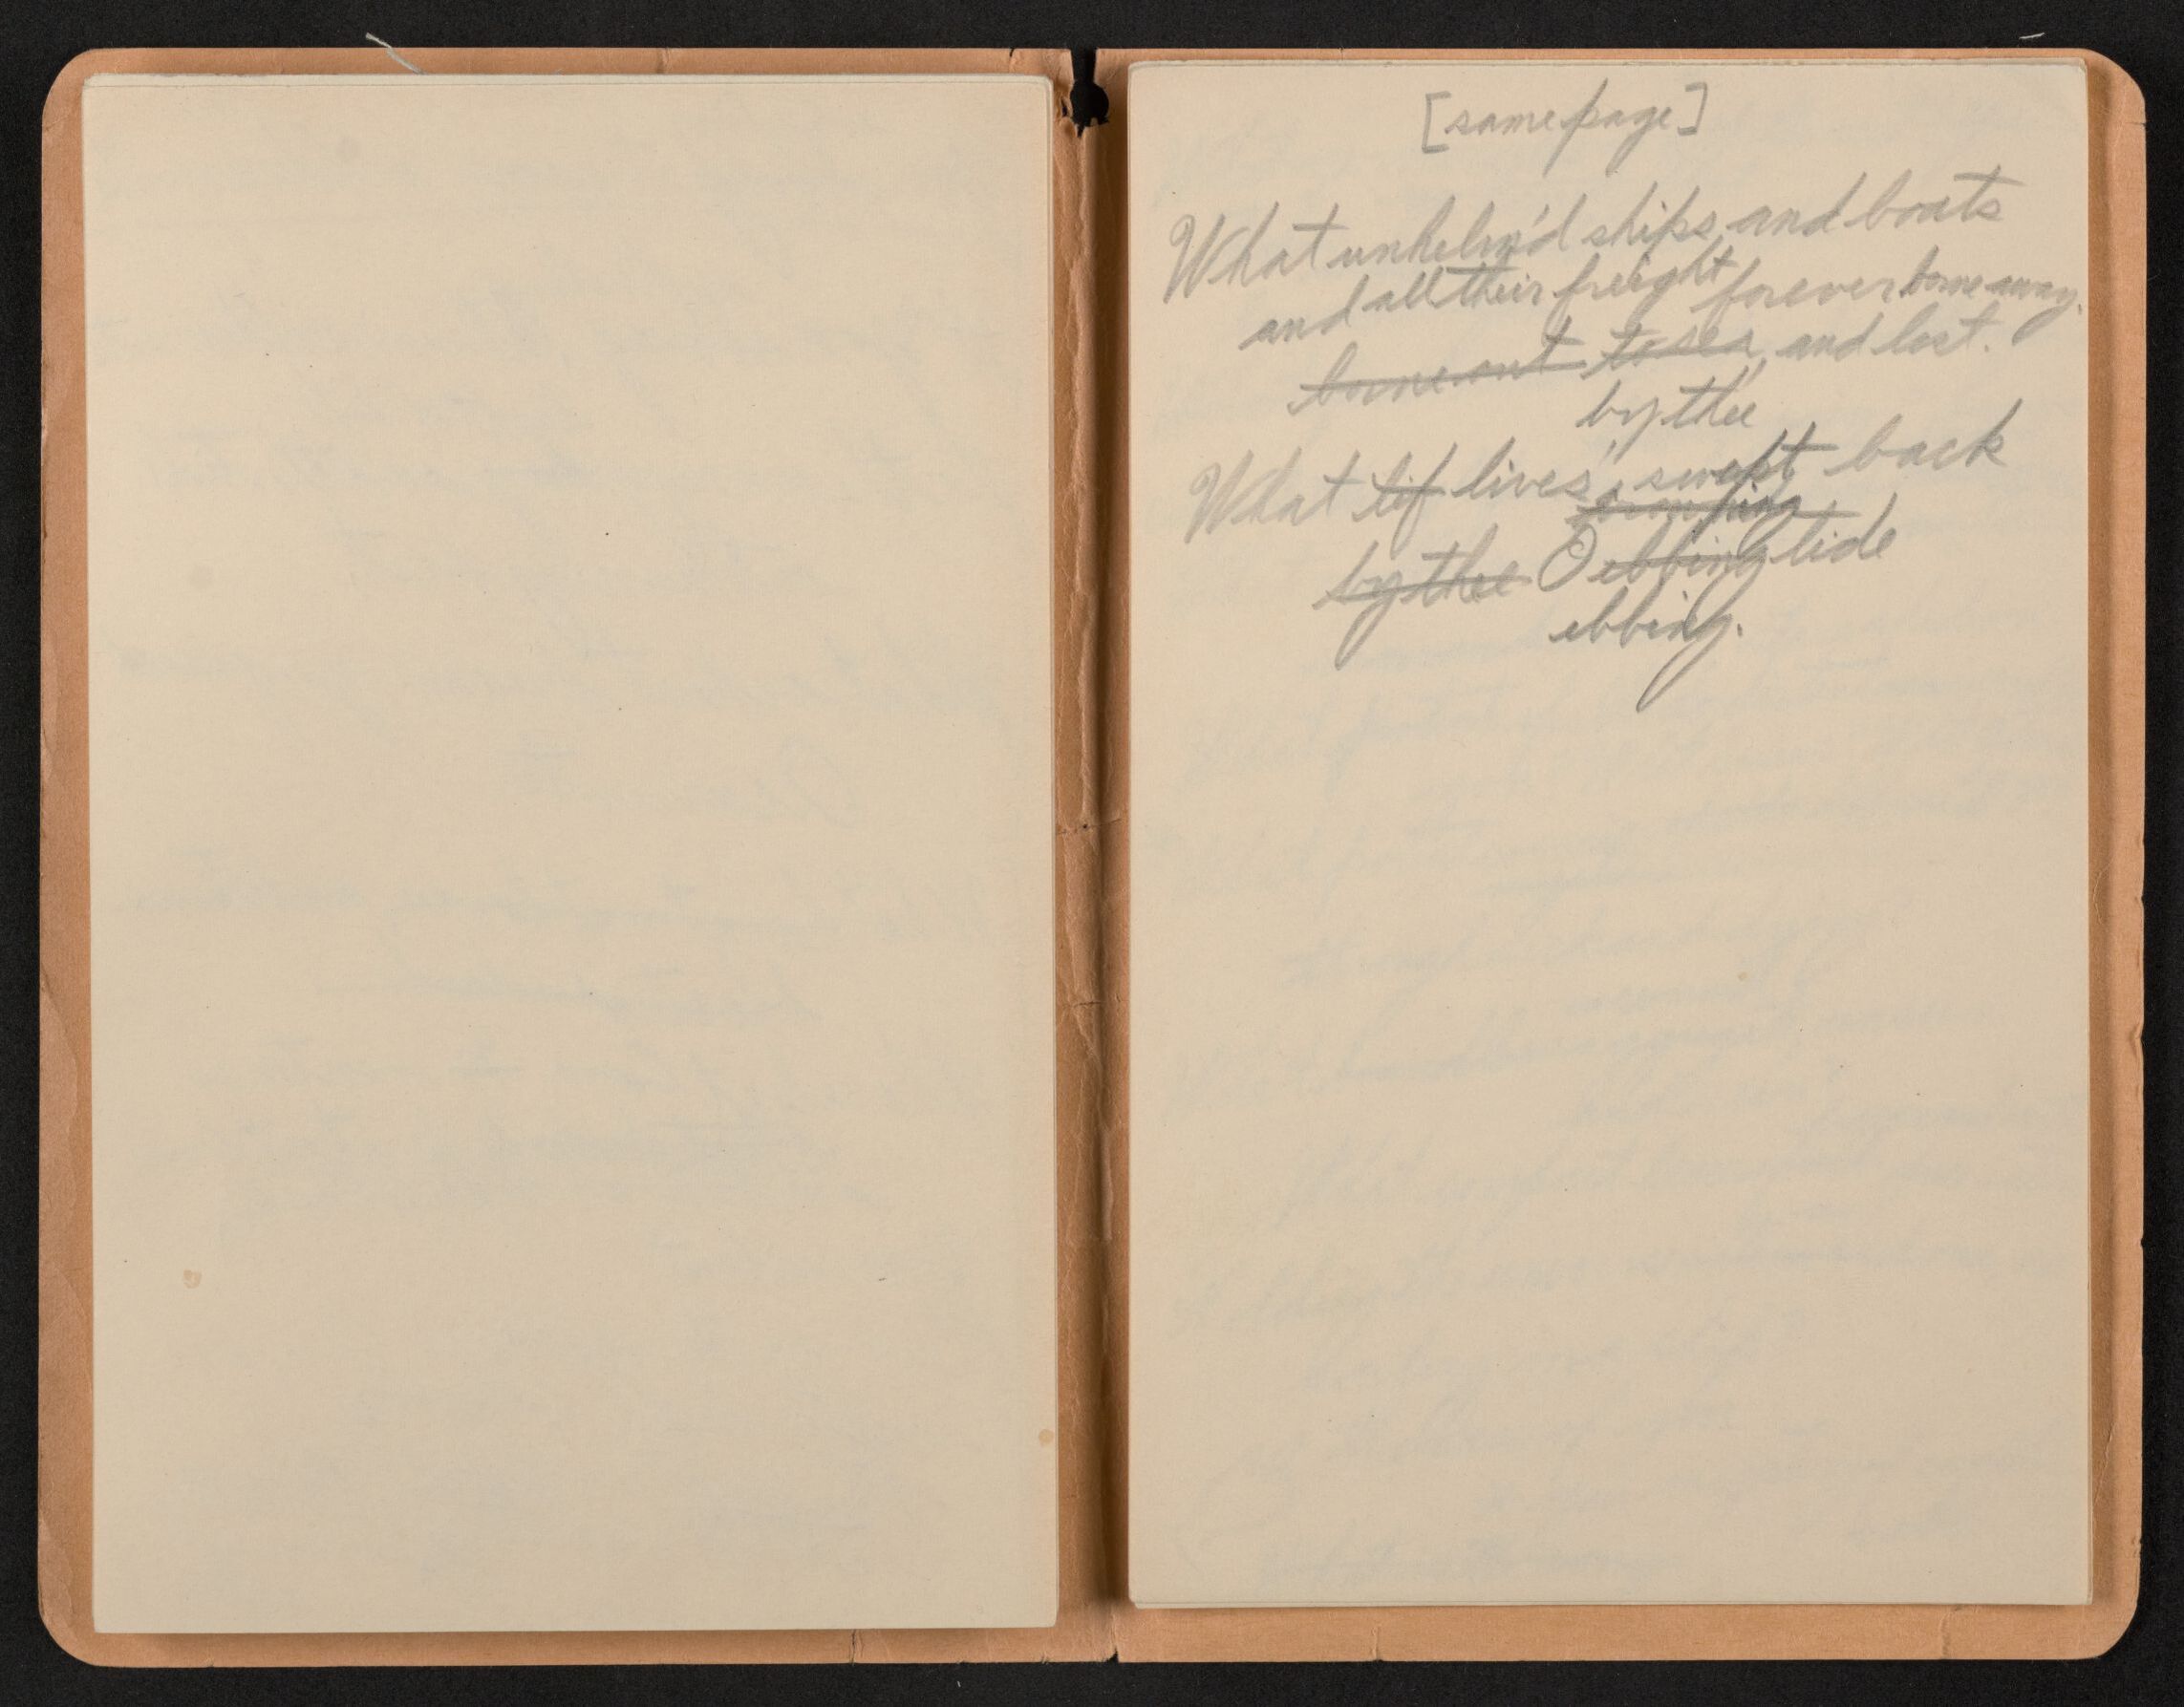 [same page]
What unhelm'd ships and boats
and all their freight forever borne away.
borne out to sea, and lost.
by thee
What lif lives, swept back
by thee O ebbing tide
ebbing.